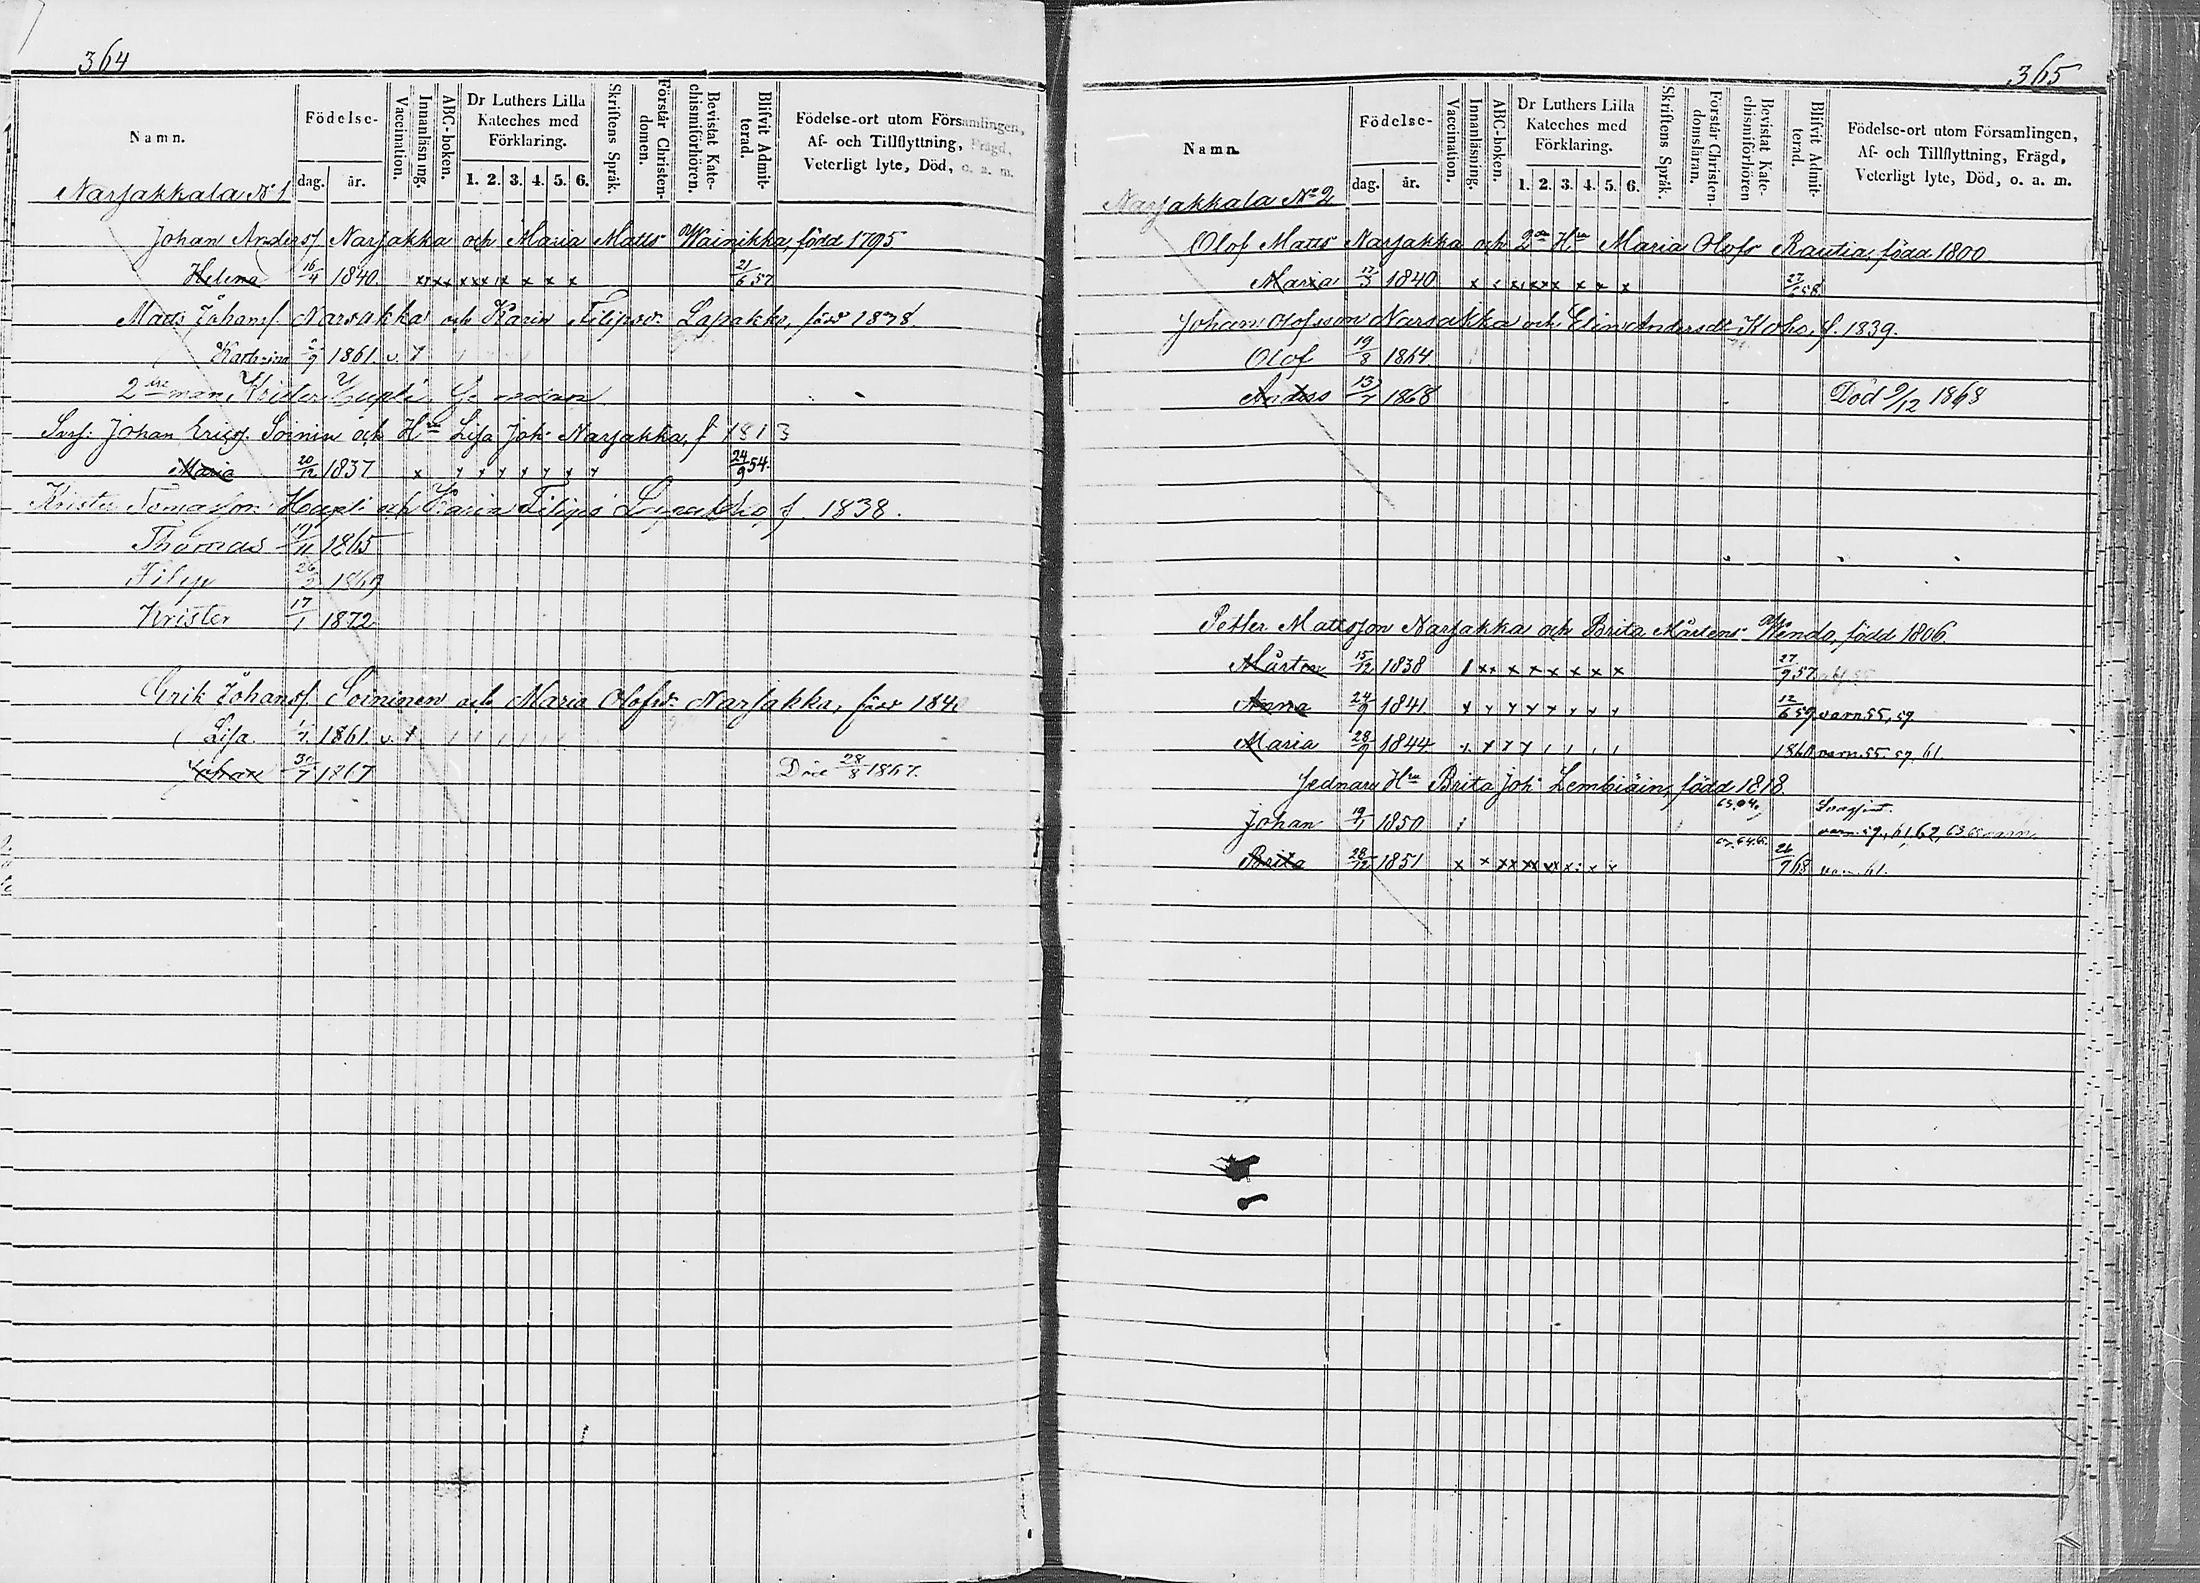 364
Namn.
Födelse-
dag. år.
Vaccination.
Innanläsning.
ABC-boken.
Dr Luthers Lilla Kateches med Förklaring.
1. 2. 3. 4. 5. 6.
Skriftens Språk.
Förstår Christendomen.
Bevistat Katechismiförhören.
Blifvit Admitterad.
Födelse-ort utom Församlingen,
Af- och Tillflyttning, Frägd,
Veterligt lyte, Död, o. a. m.
Narjakkala No 1
Johan Andersf Narjakka och Maria Matts Wainikka, född 1795
Helena 16/4 1840. 21/6 57
Matts Johansf. Narjakka och Karin Filipsd. Lapakko, född 1838.
Katarina 2/9 1861. v.
2dre man Krister Hupli Se nedan
Johan Ericsf. Soinin och Hru Lisa Joh: Narjakka, f 1813
Maria 20/12 1837 24/9 54.
Krister Tomasson Hupli och Karin Filips Lapakko, f. 1838.
Thomas 19/11 1865
Filip 26/2 1869
Krister 17/1 1872
Erik Johansf. Soininen och Maria Olofsd. Narjakka, född 184
Lisa 1861. v.
Johan 30/7 1867 Död 28/8 1867.
365
Namn.
Födelse-
dag. år.
Vaccination.
Innanläsning.
ABC-boken.
Dr Luthers Lilla Kateches med Förklaring.
1. 2. 3. 4. 5. 6.
Skriftens Språk.
Förstår Christendomsläran.
Bevistat Katechismiförhören
Blifvit Admitterad.
Födelse-ort utom Församlingen,
Af- och Tillflyttning, Frägd,
Veterligt lyte, Död, o. a. m.
Narjakkala No 2
Olof Matts Narjakka och 2dra Hru Maria Olofs Rautia, född 1800
Maria 1840
Johan Olofsson Narjakka och Elin Andersdr Koho, f. 1839.
Olof 19/8 1864.
Anders 13/7 1868 Död 9/12 1868
Petter Mattsson Narjakka och Brita Mårtens Wendo, född 1806
Mårten 15/12 1838 27/9 57
Anna 24/9 1841 12/6 59 varn 55, 59
Maria 28/9 1844 1860 varn. 55. 59. 61.
Hru Brita Joh: Lembiäin, född 1818.
Johan 19/1 1850 varn. 59, 61, 62, 63
Brita 28/12 1851 26/9 68 varn. 61.